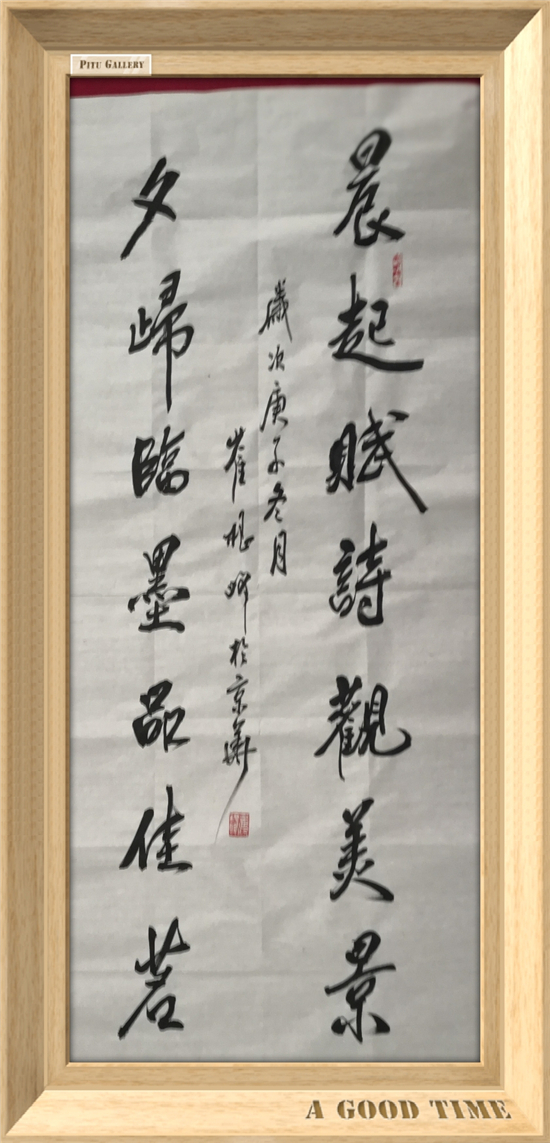 PITU GALLERY
晨起賦詩觀美景
歲次庚子冬月
崔於京華
夕歸臨墨品佳茗
A GOOD TIME